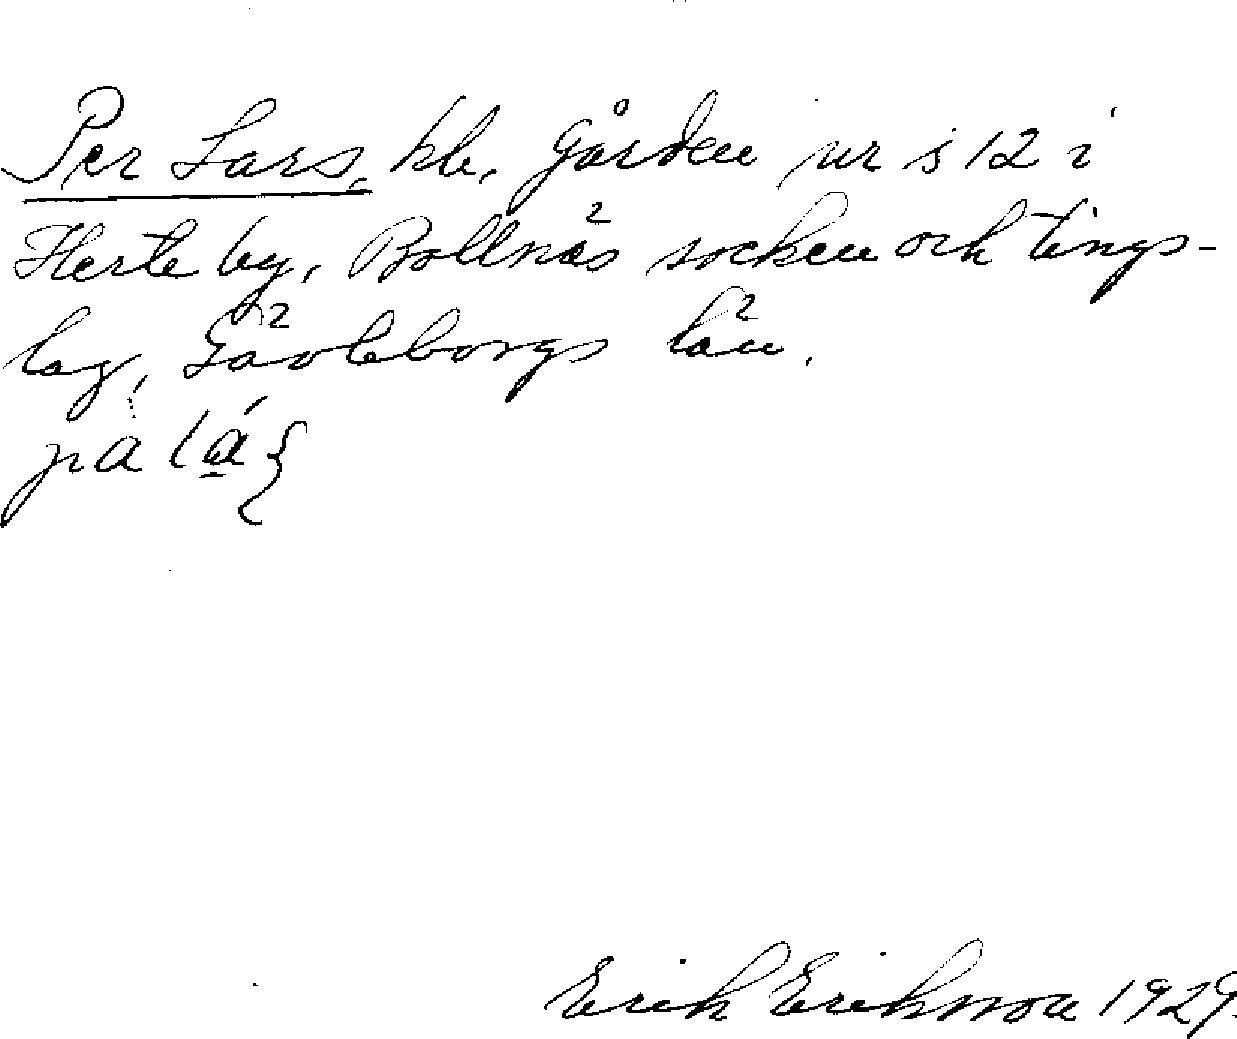 Per Lars, kb. Gården nr s 12 i
Herte by, Bollnäs socken och tings-
lag, Gävleborgs län.
på
Erik Eriksson 1929.